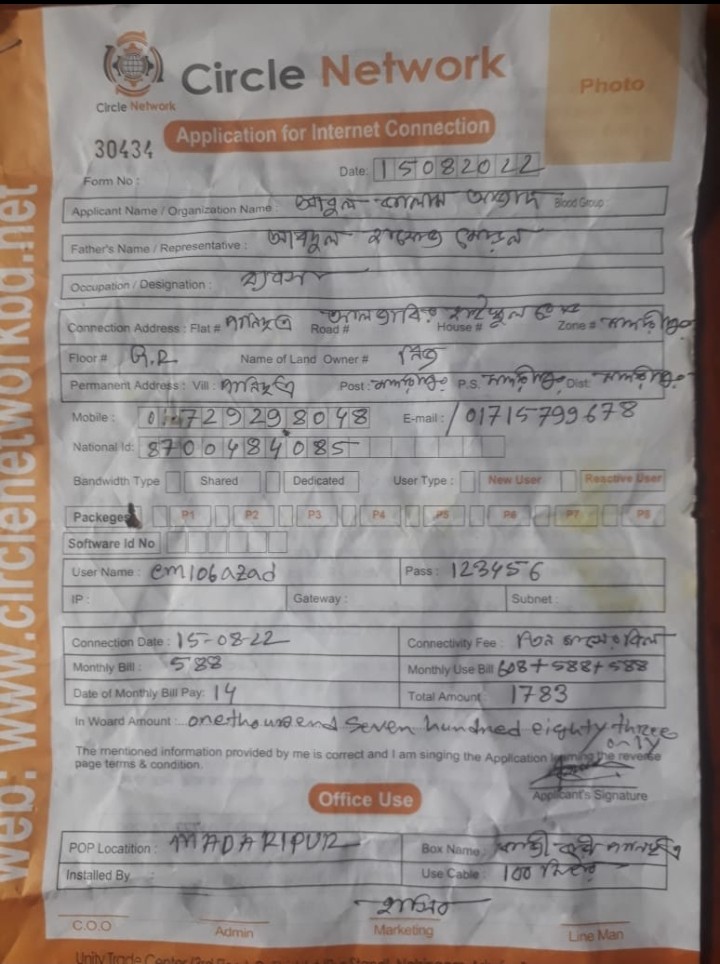 Circle Network
Circle Network
Photo
Application for Internet Connection
30434
Form No :
Date: 15082022
Applicant Name / Organization Name : আবুল কালাম আজাদ Blood Group :
Father's Name / Representative : আবদুল
Occupation / Designation : ব্যবসা
Connection Address : Flat # পানিছত্র Road # House # Zone # মাদারীপুর
Floor # G.R Name of Land Owner # নিজ
Permanent Address : Vill : পানিছত্র Post : মাদারীপুর P.S. মাদারীপুর Dist: মাদারীপুর
Mobile : 01729298048 E-mail : / 01715799678
National Id: 8700484085
Bandwidth Type Shared Dedicated User Type : New User Reactive User
Packeges P1 P2 P3 P4 P5 P6 P7 P8
Software Id No
User Name : em106azad Pass : 123456
IP : Gateway : Subnet :
Connection Date : 15-08-22 Connectivity Fee : তিন মাসের বিল
Monthly Bill : 588 Monthly Use Bill 608+588+588
Date of Monthly Bill Pay: 14 Total Amount : 1783
In Woard Amount : one thousend seven hundred eighty three only
The mentioned information provided by me is correct and I am singing the Application the reverse
page terms & condition.
Applicant's Signature
Office Use
POP Locatition : MADARIPUR Box Name : পানিছত্র
Installed By Use Cable : 100 মিটার
হাসিব
C.O.O Admin Marketing Line Man
web: www.circlenetworkbd.net